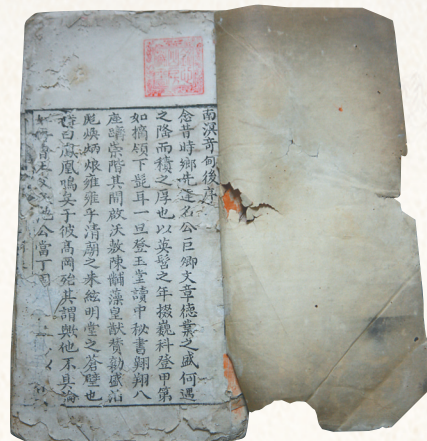 南溟奇甸後序
念昔時鄉先達名公巨卿文章德業之盛何遇
之隆而積之厚也以英髫之年掇巍科登甲第
如摘頷下髭耳一旦登玉堂讀中秘書翱翔八
座躋崇階其間啟沃敷陳黼藻皇猷贊勷盛治
彪煥炳烺雍雍乎清廟之朱絃明堂之蒼璧也
詩曰鳳凰鳴矣于彼高岡殆其謂與他不具論
公當丁